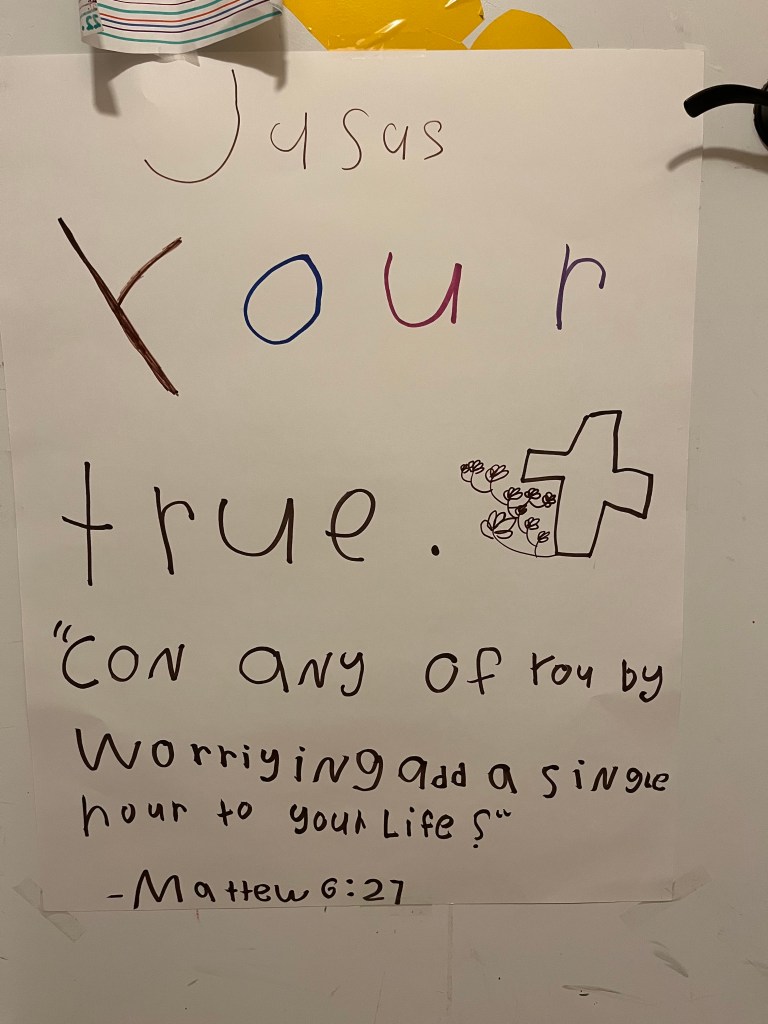 Jusus
Your
true.
"CON ANy Of you by
Worriying add a single
hour to your Life?"
-Mattew 6:27